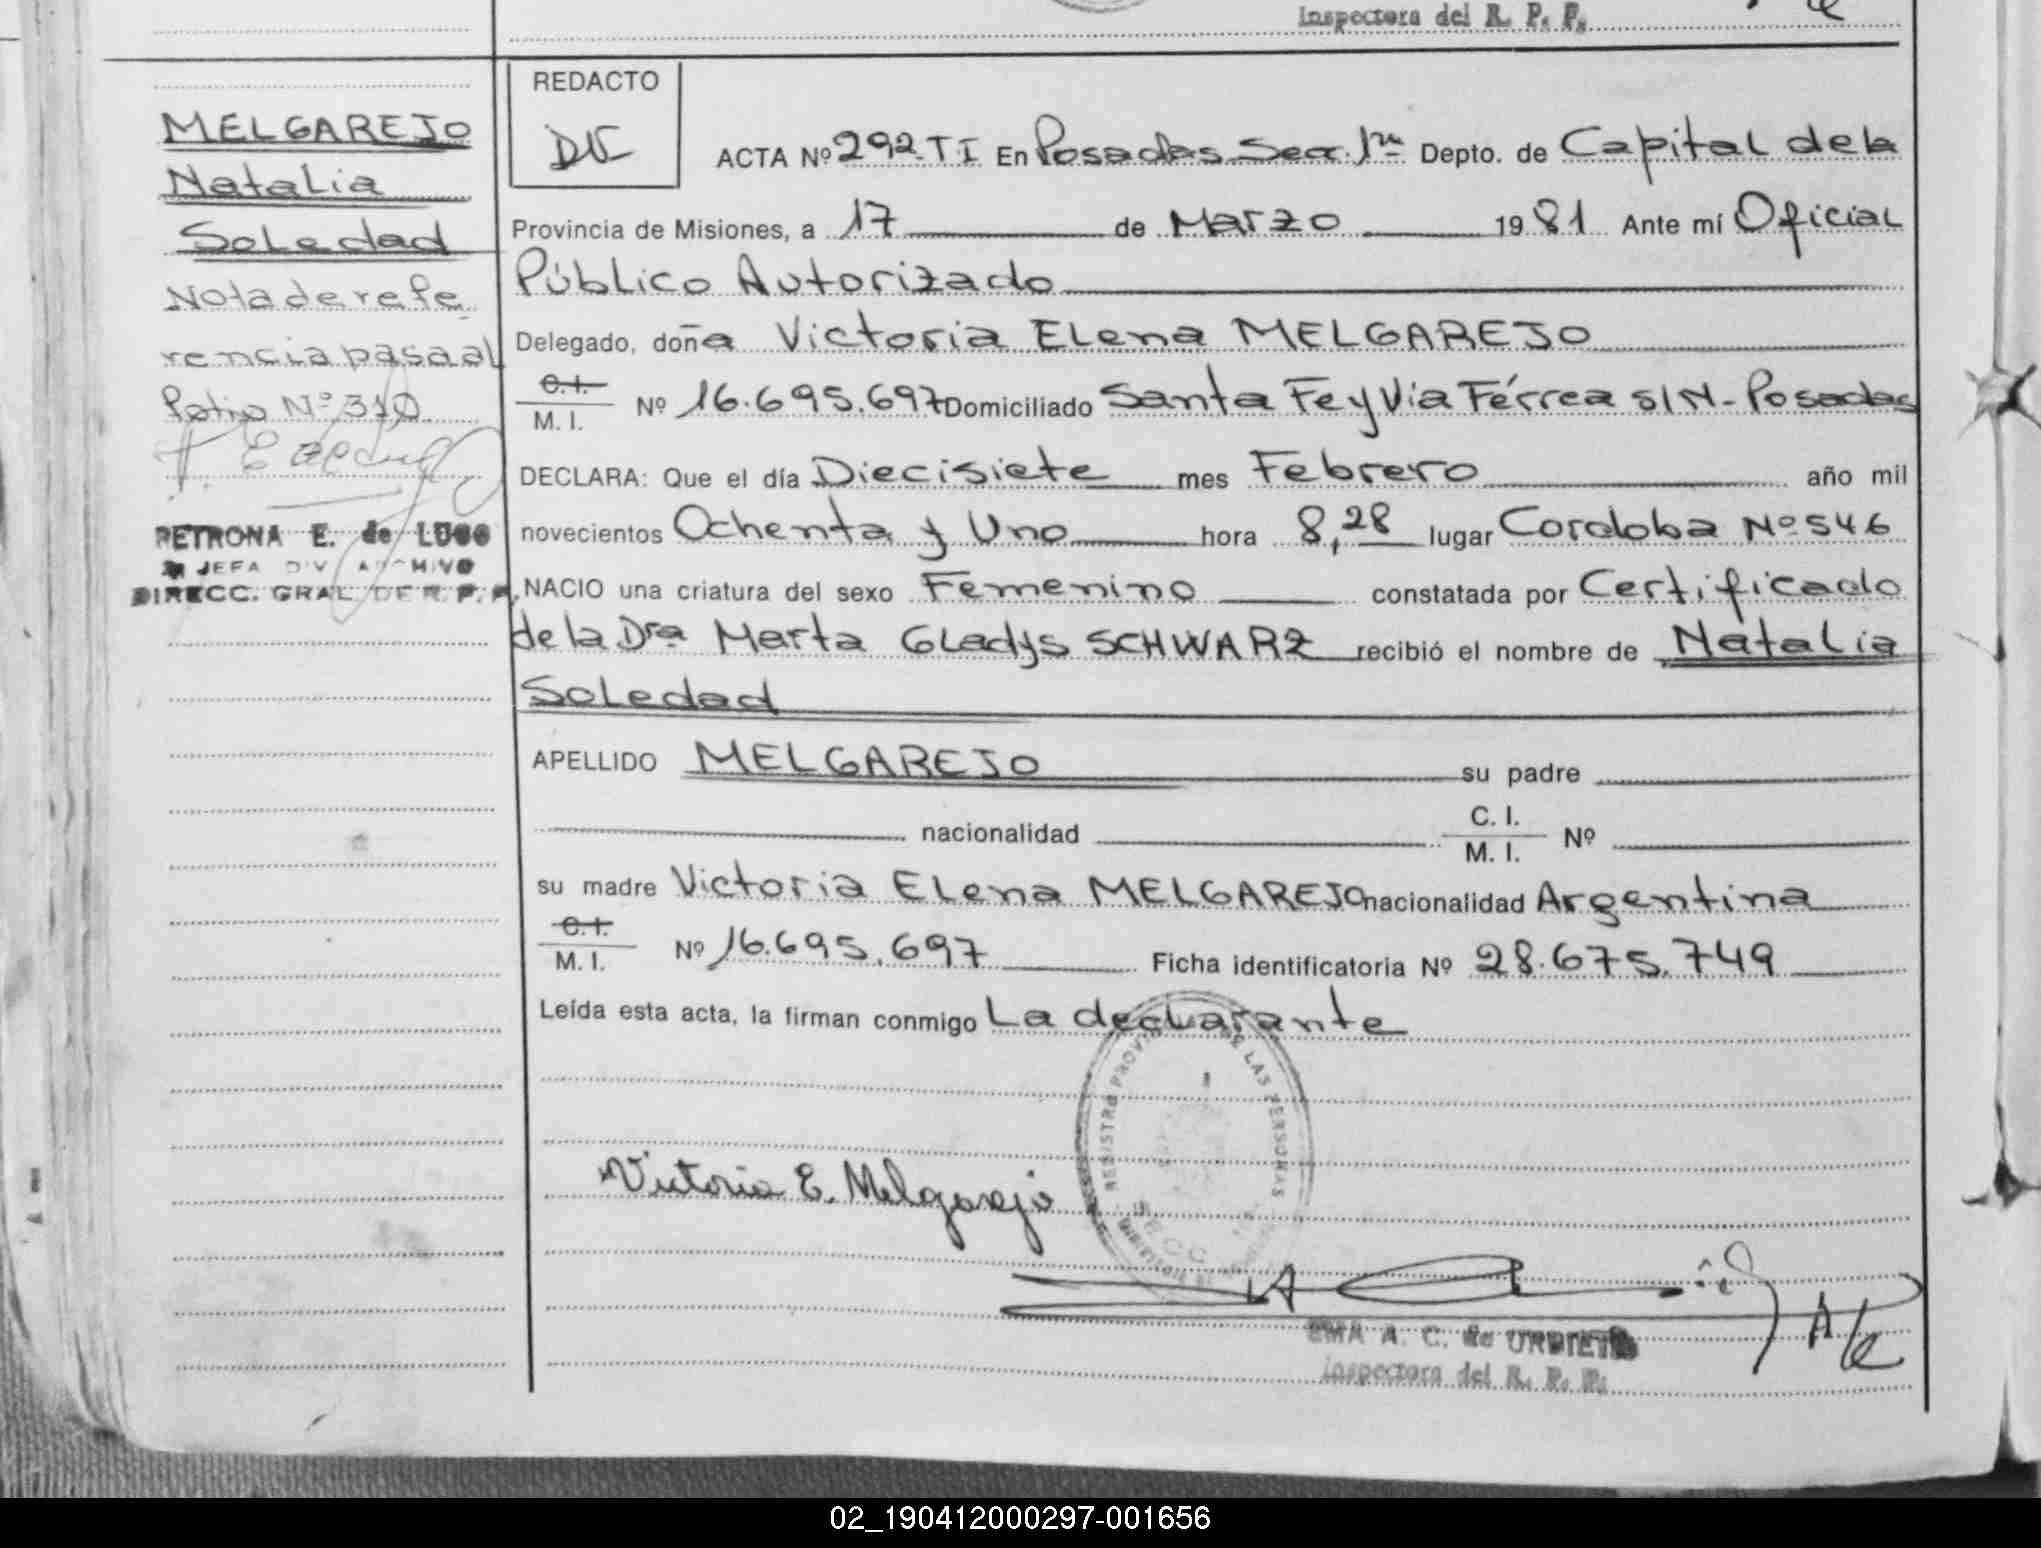 Inspectora del R. P. P.
MELGAREJO
Natalia
Soledad
Nota de refe
rencia pasa al
Folio Nº 310
PETRONA E. de LUGO
JEFA DIV ARCHIVO
DIRECC. GRAL DE R. P. P.
REDACTO
ACTA Nº 292. TI En Posadas Secc. 1ra Depto. de Capital de la
Provincia de Misiones, a 17 de Marzo 1981 Ante mí Oficial
Público Autorizado
Delegado, doña Victoria Elena MELGAREJO
C. I.
M. I. Nº 16.695.697 Domiciliado Santa Fe y Via Férrea S/N - Posadas
DECLARA: Que el día Diecisiete mes Febrero año mil
novecientos Ochenta y Uno hora 8,28 lugar Cordoba Nº 546
NACIO una criatura del sexo Femenino constatada por Certificado
de la Dra Marta Gladys SCHWARZ recibió el nombre de Natalia
Soledad
APELLIDO MELGAREJO su padre
nacionalidad C. I.
M. I. Nº
su madre Victoria Elena MELGAREJO nacionalidad Argentina
C. I.
M. I. Nº 16.695.697 Ficha identificatoria Nº 28.675.749
Leída esta acta, la firman conmigo La declarante
REGISTRO PROVINCIAL DE LAS PERSONAS
Victoria E. Melgarejo
EMA A. C. de URDIETA
Inspectora del R. P. P.
02_190412000297-001656